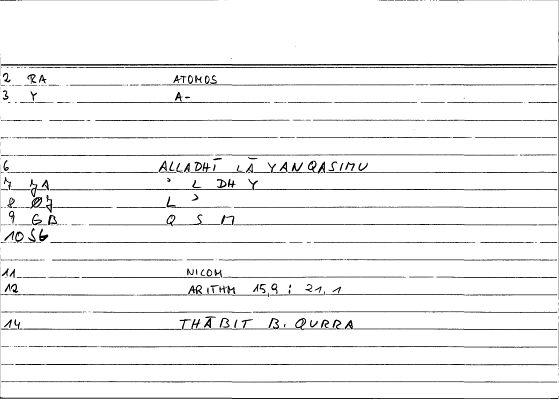 2 RA ATOMOS
3 Y A-
6 ALLADHĪ LĀ YANQASIMU
7 JA ʾ L DH Y
8 ØJ L ʾ
9 GB Q S M
10 SG
11 NICOM
12 ARITHM 15,9 ; 21,1
14 THĀBIT B. QURRA